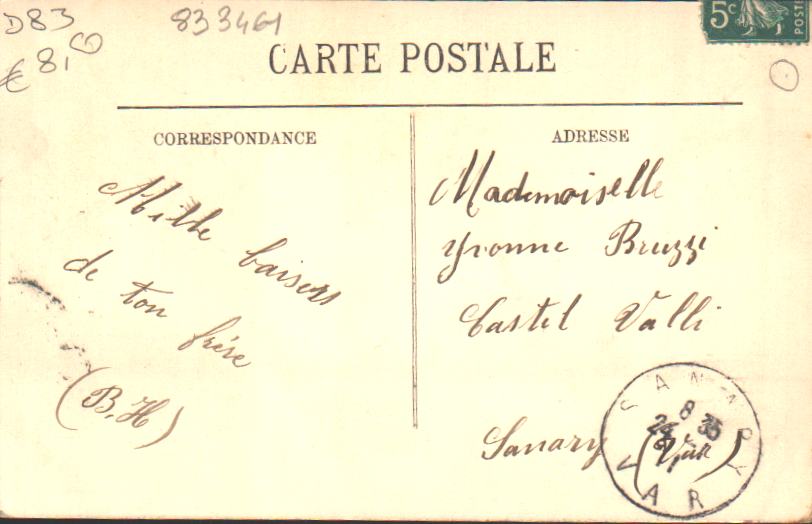 D83
833461
€ 8,00
5c
POSTES
CARTE POSTALE
CORRESPONDANCE
ADRESSE
Mille baisers
de ton frère
(B.H)
Mademoiselle
Yvonne Bruzzi
Castel Valli
Sanary (Var)
SANARY
8 35
VAR